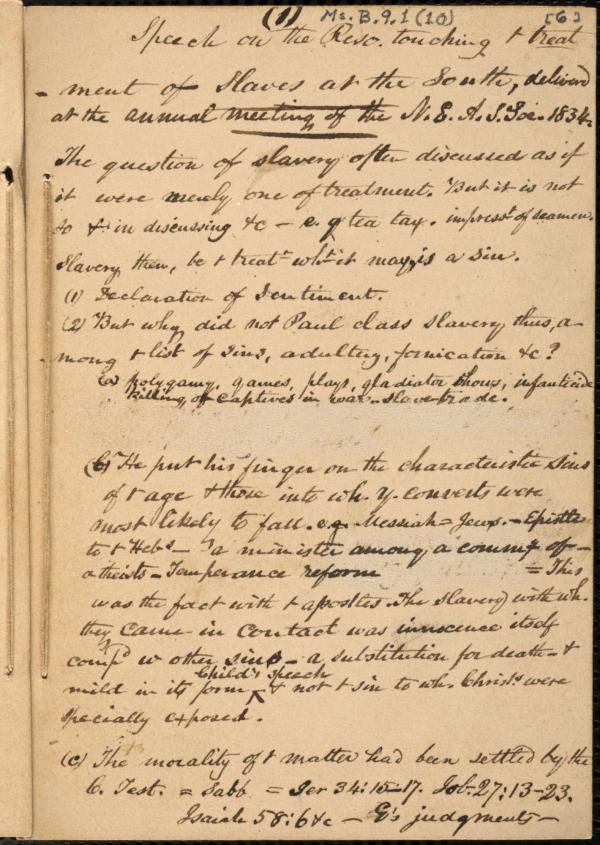 (1) Ms. B.9.1 (10) [6]
Speech on the Reso. touching t treat
ment of Slaves at the South, delivered
at the annual meeting of the N. E. A. S. Soc. 1834.
The question of slavery often discussed as if
it were merely one of treatment. But it is not
so & in discussing &c - e.g. tea tax. impresst of seamen.
Slavery then, be t treatt wht it may, is a sin.
(1) Declaration of Sentiment.
(2) But why did not Paul class slavery thus, a-
mong t list of sins, adultery, fornication &c?
(a) polygamy, games, plays, gladiator shows, infanticide
killing of captives in war - slave trade.
(b) He put his finger on the characteristic sins
of t age & those into wh. y. converts were
most likely to fall. e.g. Messiah = Jews. - Epistle
to t Hebs - a minister among a commy of -
atheists - Temperance reform = This
was the fact with t apostles. The slavery with wh.
they came in contact was innocence itself
compd w other sins - a substitution for death - &
Child's speech
mild in its form & not t sin to wh. Christs were
specially exposed.
(c) The morality of t matter had been settled by the
O. Test. = Sabb. = Jer 34:15-17. Job. 27:13-23.
Isaiah 58:6 &c - G's judgments -